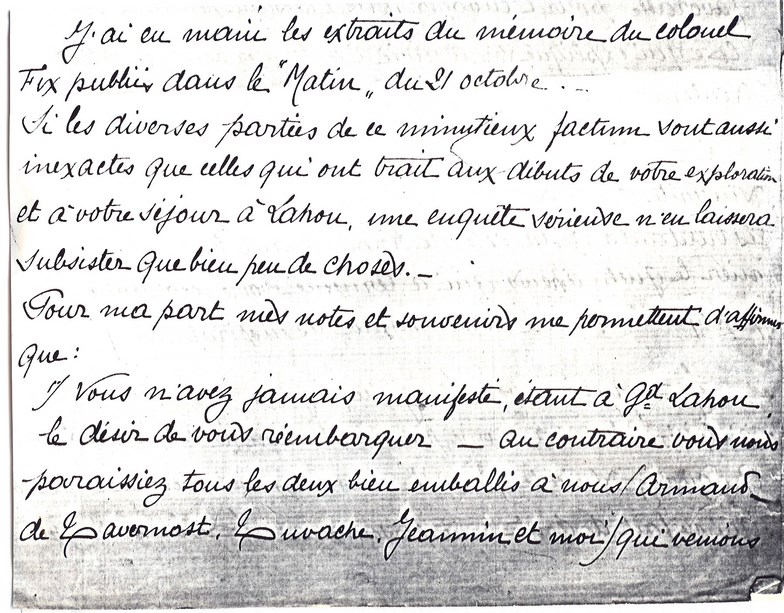 J'ai eu main les extraits du mémoire du colonel
Fix publiés dans le "Matin" du 21 octobre...
Si les diverses parties de ce minutieux factum sont aussi
inexactes que celles qui ont trait aux débuts de votre exploration
et à votre séjour à Lahou, une enquête sérieuse n'en laissera
subsister que bien peu de choses. _
Pour ma part mes notes et souvenirs me permettent d'affirmer
que :
1/ Vous n'avez jamais manifesté, étant à Gd Lahou,
le désir de vous réembarquer _ au contraire vous nous
paraissiez tous les deux bien emballés à nous (Armand
de Tavernost, Luvache, Jeannin et moi) qui venions